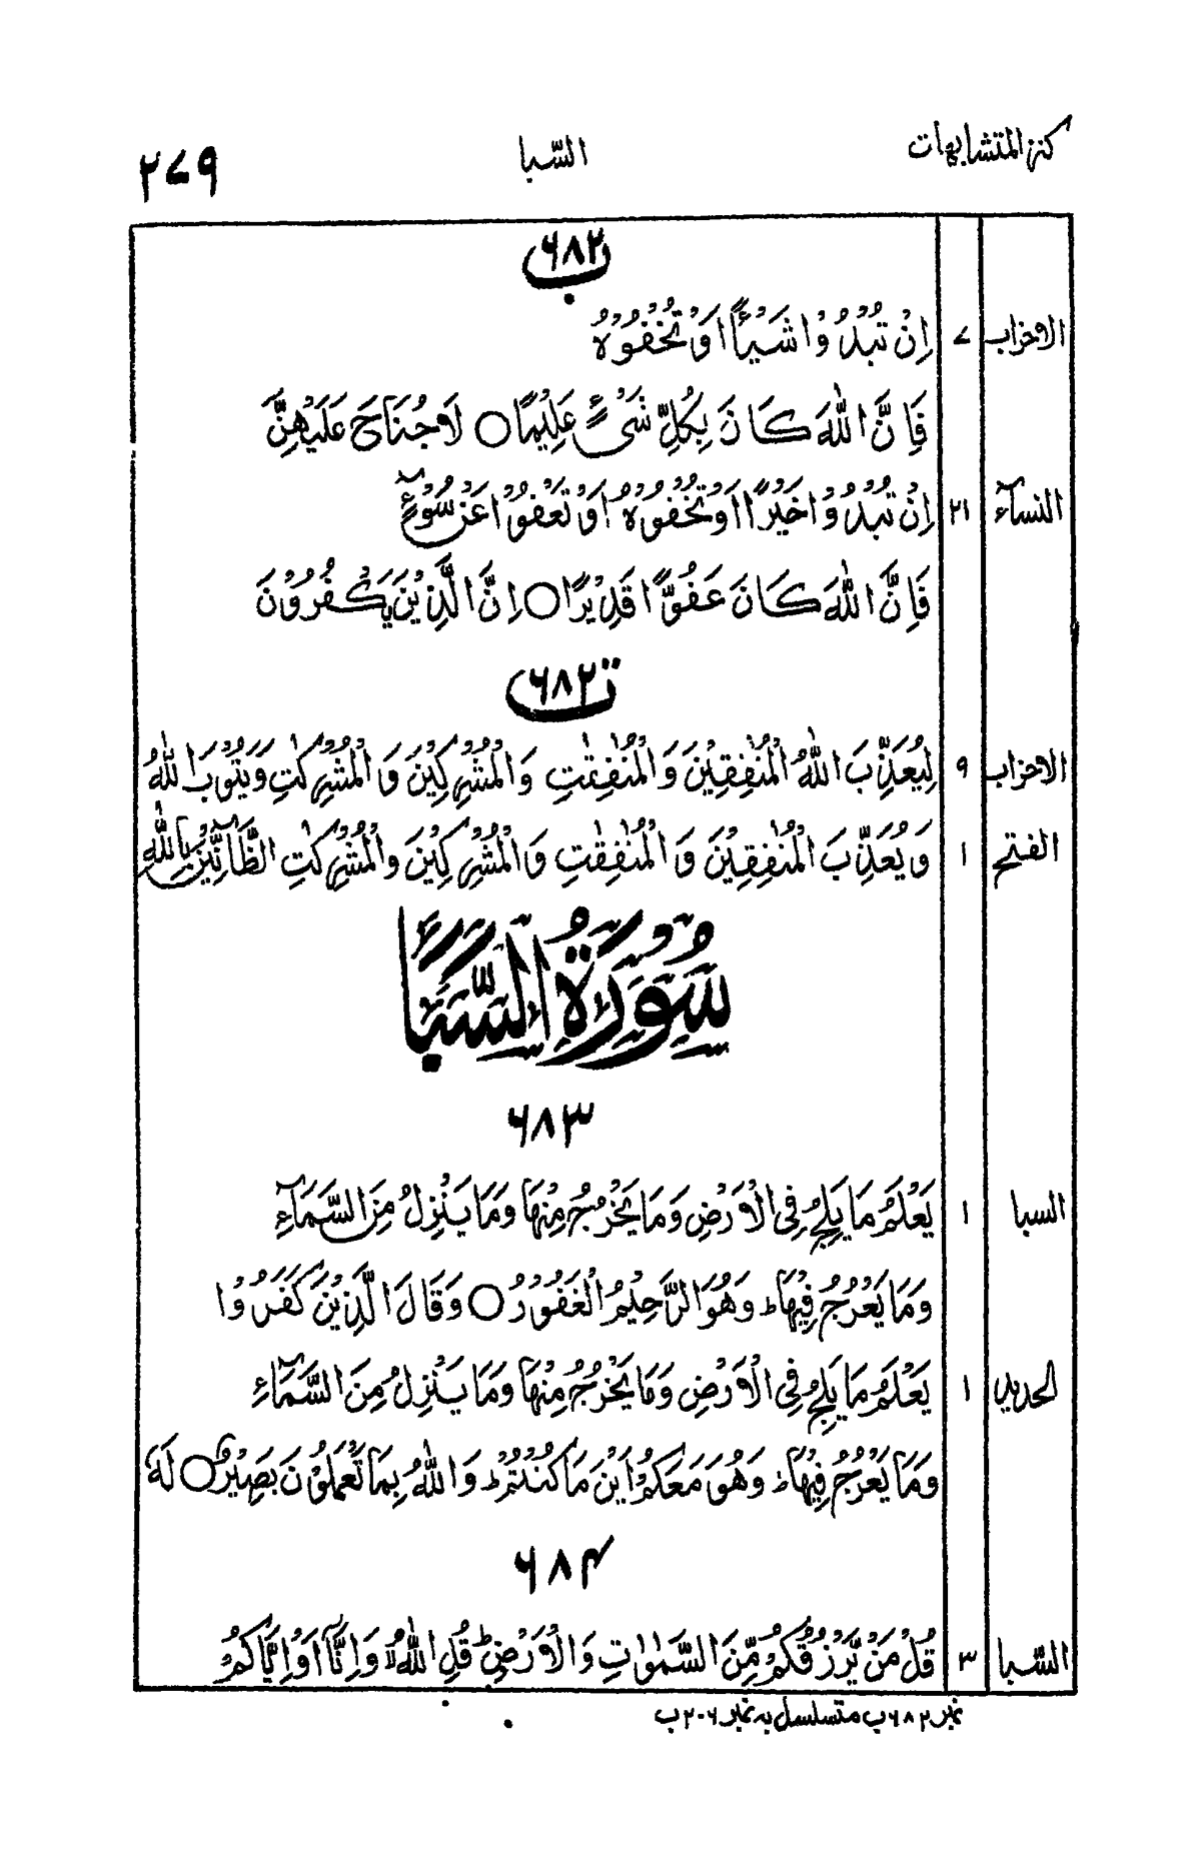 كنز المتشابهات السّبا ٢٧٩
٦٨٢ ب
الاحزاب ٧ اِنْ تُبْدُوْا شَيْـًٔا اَوْ تُخْفُوْهُ
فَاِنَّ اللّٰهَ كَانَ بِكُلِّ شَىْءٍ عَلِيْمًا ○ لَا جُنَاحَ عَلَيْهِنَّ
النسآء ٢١ اِنْ تُبْدُوْا خَيْرًا اَوْ تُخْفُوْهُ اَوْ تَعْفُوْا عَنْ سُوْٓءٍ
فَاِنَّ اللّٰهَ كَانَ عَفُوًّا قَدِيْرًا ○ اِنَّ الَّذِيْنَ يَكْفُرُوْنَ
٦٨٢ ت
الاحزاب ٩ لِيُعَذِّبَ اللّٰهُ الْمُنٰفِقِيْنَ وَالْمُنٰفِقٰتِ وَالْمُشْرِكِيْنَ وَالْمُشْرِكٰتِ وَيَتُوْبَ اللّٰهُ
الفتح ١ وَيُعَذِّبَ الْمُنٰفِقِيْنَ وَالْمُنٰفِقٰتِ وَالْمُشْرِكِيْنَ والْمُشْرِكٰتِ الظَّآنِّيْنَ بِاللّٰهِ
سُوْرَةُ السَّبَإِ
٦٨٣
السبا ١ يَعْلَمُ مَا يَلِجُ فِى الْاَرْضِ وَمَا يَخْرُجُ مِنْهَا وَمَا يَنْزِلُ مِنَ السَّمَآءِ
وَمَا يَعْرُجُ فِيْهَا ؕ وَهُوَ الرَّحِيْمُ الْغَفُوْرُ ○ وَقَالَ الَّذِيْنَ كَفَرُوْا
الحديد ١ يَعْلَمُ مَا يَلِجُ فِى الْاَرْضِ وَمَا يَخْرُجُ مِنْهَا وَمَا يَنْزِلُ مِنَ السَّمَآءِ
وَمَا يَعْرُجُ فِيْهَا ؕ وَهُوَ مَعَكُمْ اَيْنَ مَا كُنْتُمْ ؕ وَاللّٰهُ بِمَا تَعْمَلُوْنَ بَصِيْرٌ ○ لَهٗ
٦٨٤
السّبا ٣ قُلْ مَنْ يَّرْزُقُكُمْ مِّنَ السَّمٰوٰتِ وَالْاَرْضِ ؕ قُلِ اللّٰهُ ۙ وَاِنَّآ اَوْ اِيَّاكُمْ
نمبر ٦٨٢ ب متسلسل به نمبر ٢٠٦ ب